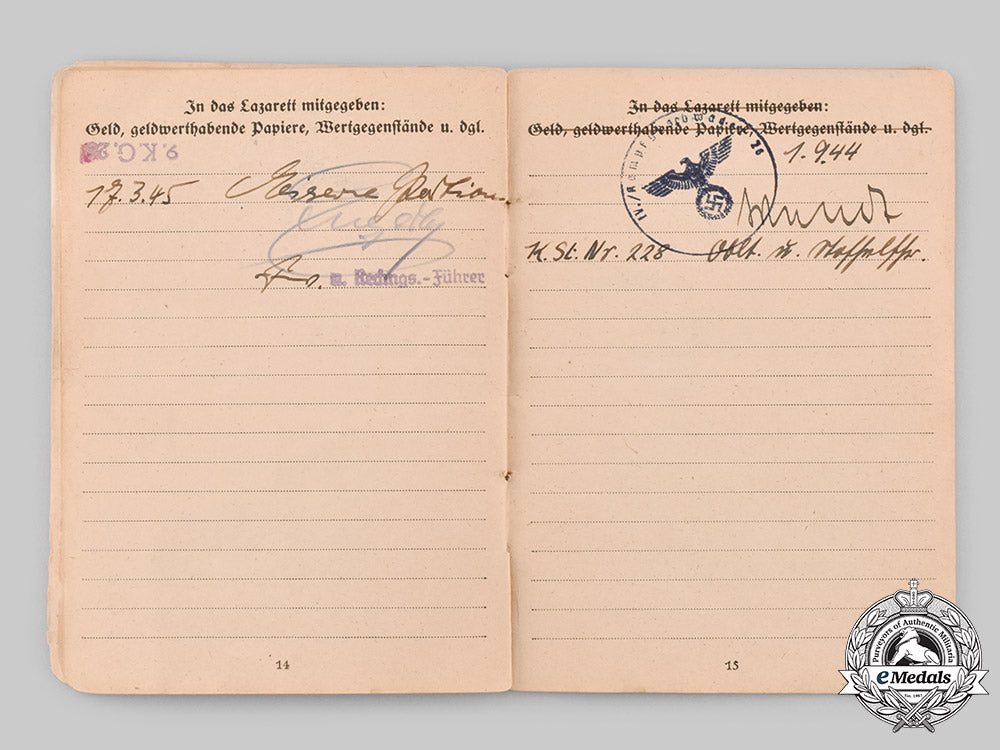 In das Lazarett mitgegeben:
Geld, geldwerthabende Papiere, Wertgegenstände u. dgl.
9. KG. 26
17.3.45 Eiserne Portion
u. Rechngs.-Führer
14
In das Lazarett mitgegeben:
Geld, geldwerthabende Papiere, Wertgegenstände u. dgl.
IV./Kampfgeschwader 26
1.9.44
K. St. Nr. 228 Oblt. u. Staffelfhr.
15
Purveyors of Authentic Militaria
eMedals